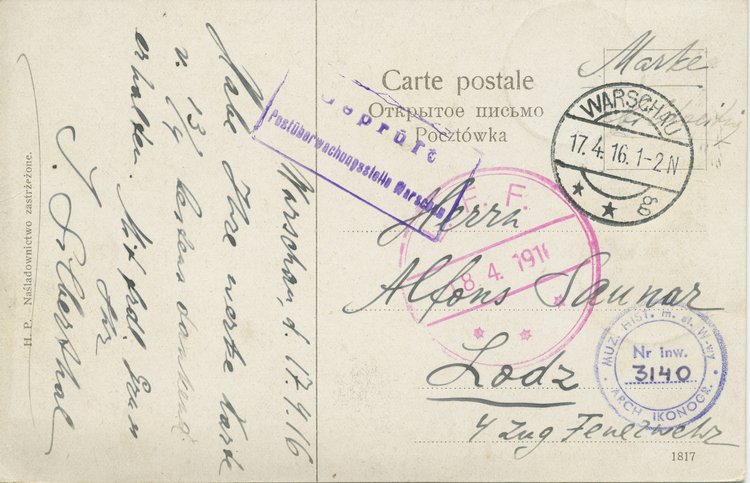 Warschau, d. 17.4.16
Habe Ihre werte Karte
v. 13/4 bestens dankend
erhalten. Mit frdl. Gruss
Ihr
J. Silberthal
H. P. Naśladownictwo zastrzeżone.
Geprüft
Postüberwachungsstelle Warschau
Carte postale
Открытое письмо
Pocztówka
Marke
WARSCHAU
17.4.16.1-2N
* * g
F. F.
8 4. 191
Herrn
Alfons
Lodz
4 Zug Feuerwehr
MUZ. HIST. m. st. W-wy
Nr inw.
3140
ARCH. IKONOGR.
1817